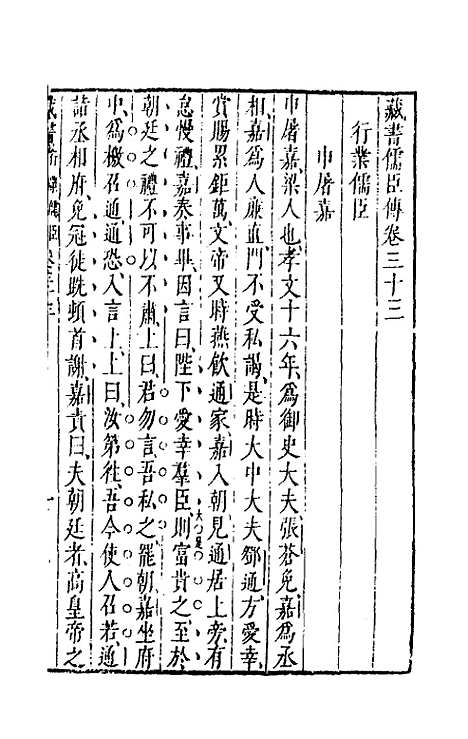 藏書儒臣傳卷三十三
行業儒臣
申屠嘉
申屠嘉梁人也孝文十六年爲御史大夫張蒼免嘉爲丞
相嘉爲人廉直門不受私謁是時大中大夫鄧通方愛幸
賞賜累鉅萬文帝又時燕飲通家嘉入朝見通居上旁有
怠慢禮嘉奏事畢因言曰陛下愛幸羣臣則富貴之至於
大是
朝廷之禮不可以不肅上曰君勿言吾私之罷朝嘉坐府
中爲檄召通通恐入言上上曰汝第徃吾今使人召若通
詣丞相府免冠徒跣頓首謝嘉責曰夫朝廷者高皇帝之